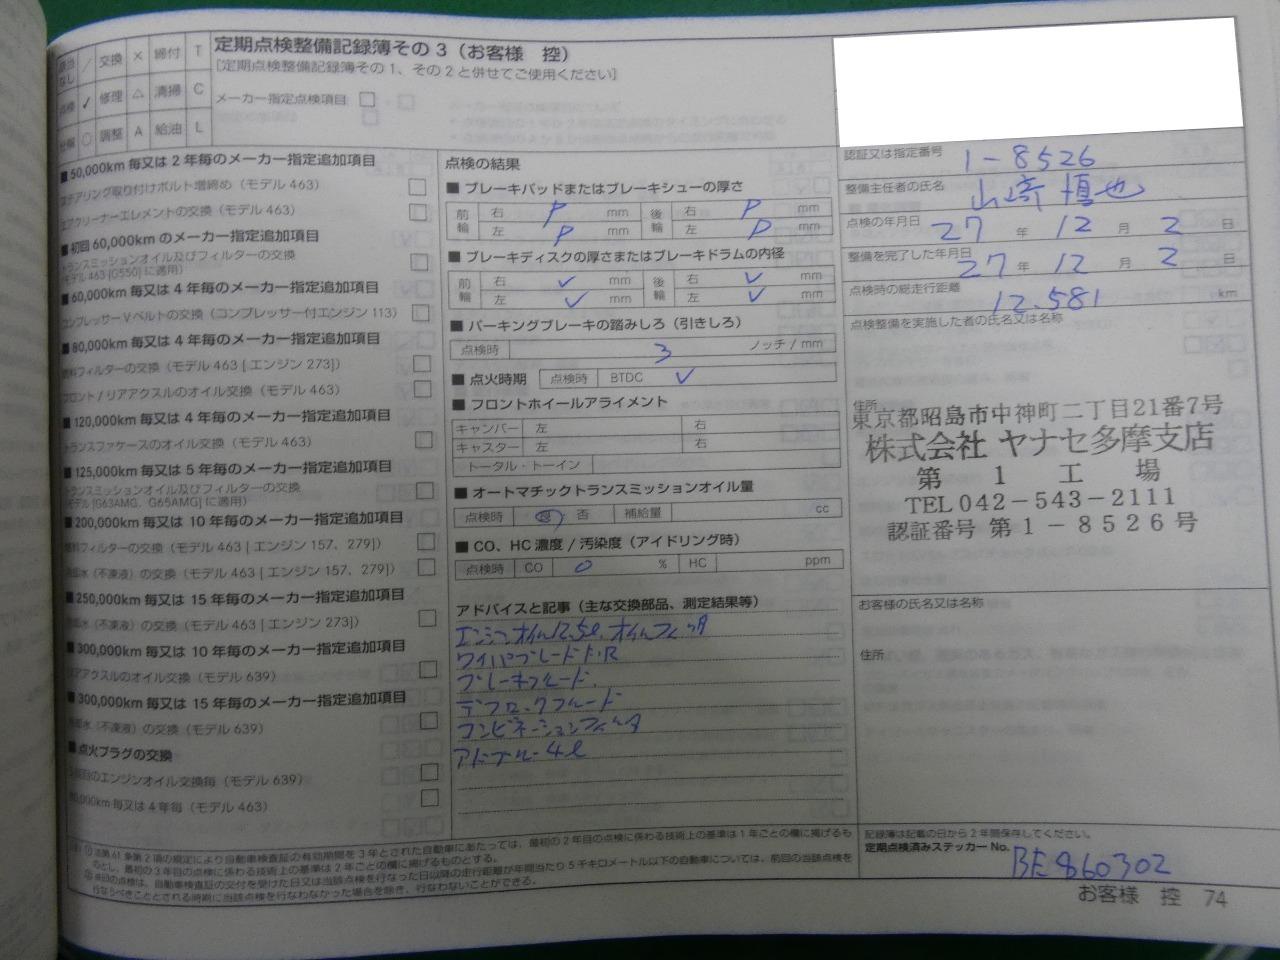 なし ／ 交換 × 締付 T
点検 ✓ 修理 △ 清掃 C
分解 ○ 調整 A 給油 L
定期点検整備記録簿その3（お客様　控）
[定期点検整備記録簿その1、その2と併せてご使用ください]
メーカー指定点検項目 □
■50,000km 毎又は2年毎のメーカー指定追加項目
ステアリング取り付けボルト増締め（モデル463） □
エアクリーナーエレメントの交換（モデル463） □
■初回60,000kmのメーカー指定追加項目
トランスミッションオイル及びフィルターの交換 □
（モデル463 [G550] に適用）
■60,000km 毎又は4年毎のメーカー指定追加項目
コンプレッサーVベルトの交換（コンプレッサー付エンジン113） □
■80,000km 毎又は4年毎のメーカー指定追加項目
燃料フィルターの交換（モデル463 [ エンジン273]） □
フロント / リアアクスルのオイル交換（モデル463） □
■120,000km 毎又は4年毎のメーカー指定追加項目
トランスファケースのオイル交換（モデル463） □
■125,000km 毎又は5年毎のメーカー指定追加項目
トランスミッションオイル及びフィルターの交換 □
（モデル [G63AMG、G65AMG] に適用）
■200,000km 毎又は10年毎のメーカー指定追加項目
燃料フィルターの交換（モデル463 [ エンジン157、279]） □
冷却水（不凍液）の交換（モデル463 [ エンジン157、279]） □
■250,000km 毎又は15年毎のメーカー指定追加項目
冷却水（不凍液）の交換（モデル463 [ エンジン273]） □
■300,000km 毎又は10年毎のメーカー指定追加項目
リアアクスルのオイル交換（モデル639） □
■300,000km 毎又は15年毎のメーカー指定追加項目
冷却水（不凍液）の交換（モデル639） □
■点火プラグの交換
回目のエンジンオイル交換毎（モデル639） □
0,000km 毎又は4年毎（モデル463） □
点検の結果
■ブレーキパッドまたはブレーキシューの厚さ
前輪 右 P mm 後輪 右 P mm
左 P mm 左 P mm
■ブレーキディスクの厚さまたはブレーキドラムの内径
前輪 右 ✓ mm 後輪 右 ✓ mm
左 ✓ mm 左 ✓ mm
■パーキングブレーキの踏みしろ（引きしろ）
点検時 3 ノッチ / mm
■点火時期 点検時 BTDC ✓
■フロントホイールアライメント
キャンバー 左 右
キャスター 左 右
トータル・トーイン
■オートマチックトランスミッションオイル量
点検時 良 否 補給量 cc
■CO、HC濃度 / 汚染度（アイドリング時）
点検時 CO 0 % HC ppm
アドバイスと記事（主な交換部品、測定結果等）
エンジンオイル12.5ℓ、オイルフィルタ
ワイパブレードF.R
ブレーキフルード、
デフロックフルード
コンビネーションフィルタ
アドブルー4ℓ
認証又は指定番号 1-8526
整備主任者の氏名 山﨑 慎也
点検の年月日 27 年 12 月 2 日
整備を完了した年月日 27 年 12 月 2 日
点検時の総走行距離 12,581 km
点検整備を実施した者の氏名又は名称
住所
東京都昭島市中神町二丁目21番7号
株式会社 ヤナセ多摩支店
第　1　工　場
TEL042-543-2111
認証番号 第1-8526号
お客様の氏名又は名称
住所
記録簿は記載の日から2年間保存してください。
定期点検済みステッカー No. BE860302
法第61条第2項の規定により自動車検査証の有効期間を3年とされた自動車にあたっては、最初の2年目の点検に係わる技術上の基準は1年ごとの欄に掲げるも
のとし、最初の3年目の点検に係わる技術上の基準は2年ごとの欄に掲げるものとする。
前回の点検は、自動車検査証の交付を受けた日又は当該点検を行なった日以降の走行距離が年間当たり5千キロメートル以下の自動車については、前回の当該点検を
行なうべきこととされる時期に当該点検を行なわなかった場合を除き、行なわないことができる。
お客様　控　74